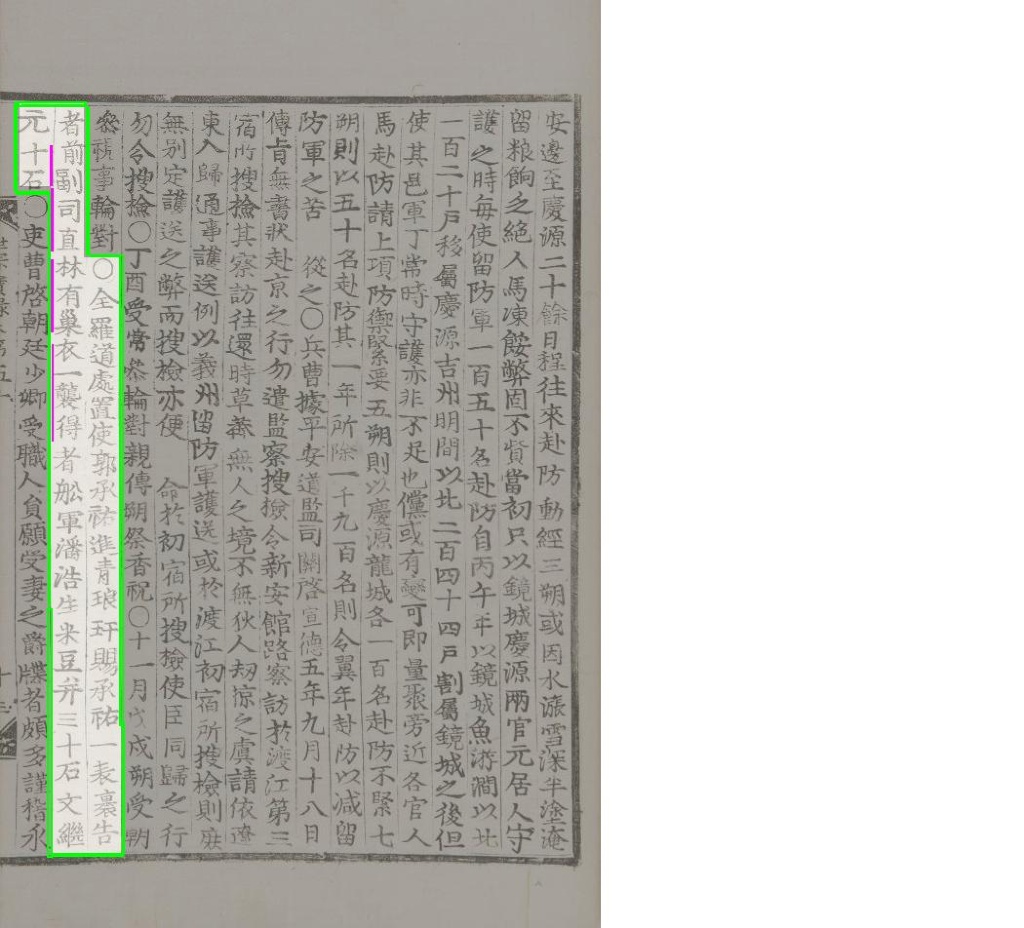 安邊至慶源二十餘日程往來赴防動經三朔或因水漲雪深半塗淹
留粮餉乏絶人馬凍餒弊固不貲當初只以鏡城慶源兩官元居人守
護之時每使留防軍一百五十名赴防自丙午年以鏡城魚游澗以北
一百二十戶移屬慶源吉州明間以北二百四十四戶割屬鏡城之後但
使其邑軍丁常時守護亦非不足也儻或有變可即量聚旁近各官人
馬赴防請上項防禦緊要五朔則以慶源龍城各一百名赴防不緊七
朔則以五十名赴防其一年所除一千九百名則令翼年赴防以減留
防軍之苦 從之○兵曹據平安道監司關啓宣德五年九月十八日
傳旨無書狀赴京之行勿遣監察搜檢令新安館路察訪於渡江第三
宿所搜檢其察訪往還時草薪無人之境不無伙人刼掠之虞請依遼
東入歸通事護送例以義州留防軍護送或於渡江初宿所搜檢則庶
無別定護送之弊而搜檢亦便 命於初宿所搜檢使臣同歸之行
勿令搜檢○丁酉受常叅輪對親傳朔祭香祝○十一月戊戌朔受朝
叅視事輪對○全羅道處置使郭承祐進青琅玕賜承祐一表裏告
者前副司直林有巢衣一襲得者船軍潘浩生米豆并三十石文繼
元十石○吏曹啓朝廷少卿受職人負願受妻之爵牒者頗多謹稽永